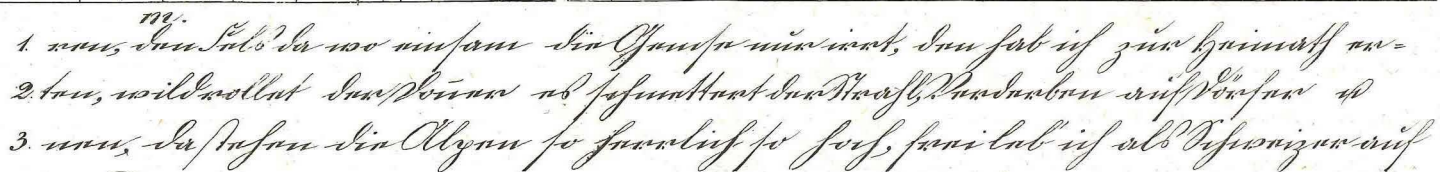 m.
1. ren, den Fels da wo einsam die Gemse nur irrt, den hab ich zur Heimath er=
2. ten, wild rollet der Don̅er es schmettert der Strahl, Verderben auf Dörfer u
3. nen, da stehen die Alpen so herrlich so hoch, frei leb' ich als Schweizer auf